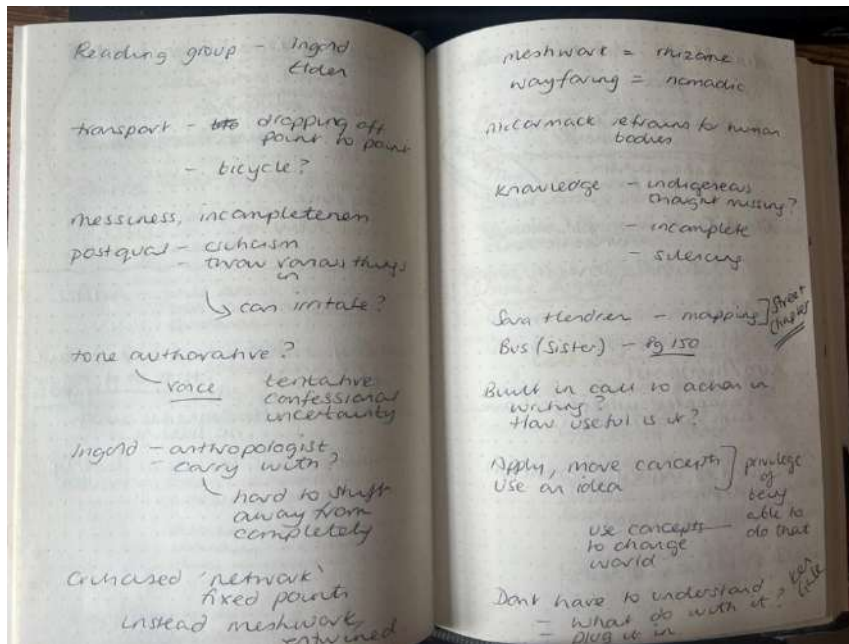 Reading group - Ingold
Elden
transport - dropping off
point to point
- bicycle?
messiness, incompleteness
postqual - criticism
- throw various things
in
↳ can irritate?
tone authorative?
voice tentative
confessional
uncertainty
Ingold - anthropologist
- carry with?
hard to shift
away from
completely
Criticised 'network'
fixed points
instead meshwork,
entwined
meshwork = rhizome
wayfaring = nomadic
McCormack refrains to human
bodies
Knowledge - indigenous
thought missing?
- incomplete
- silencing
Sara Hendren - mapping ] Street
Bus (Sister) - Pg 150 Chapter
Built in call to action in
writing?
How useful is it?
Apply, move concepts ] privilege
use an idea of
being
able to
use concepts do that
to change
world
Dont have to understand
- What do with it?
= plug it in